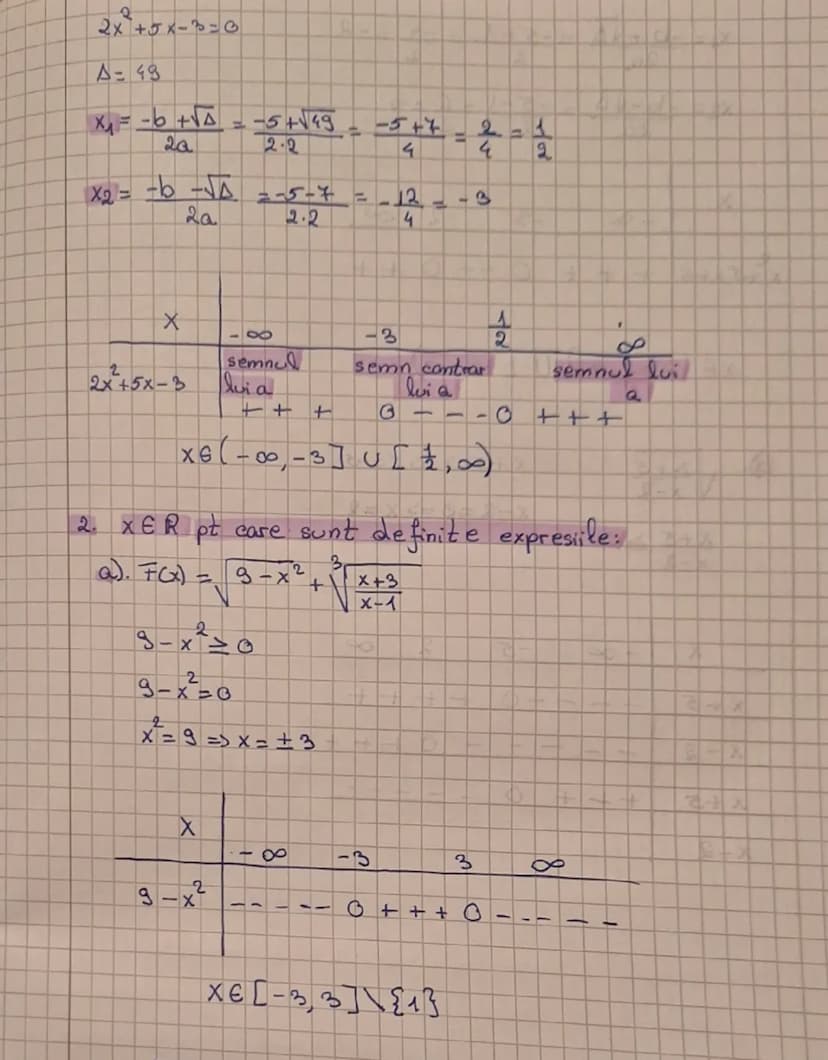 2x²+5x-3=0
Δ= 49
x₁ = (-b+√Δ)/2a = (-5+√49)/(2·2) = (-5+7)/4 = 2/4 = 1/2
x₂ = (-b-√Δ)/2a = (-5-7)/(2·2) = -12/4 = -3
x -∞ -3 1/2 ∞
semnul lui a semn contrar lui a semnul lui a
2x²+5x-3 + + + 0 - - - 0 + + +
x∈(-∞,-3] ∪ [1/2,∞)
2. x∈R pt care sunt definite expresiile:
a). F(x) = √(9-x²) + ∛((x+3)/(x-1))
9-x²≥0
9-x²=0
x²=9 => x=±3
x -∞ -3 3 ∞
9-x² - - - - - 0 + + + 0 - - - - -
x∈[-3,3]\{1}